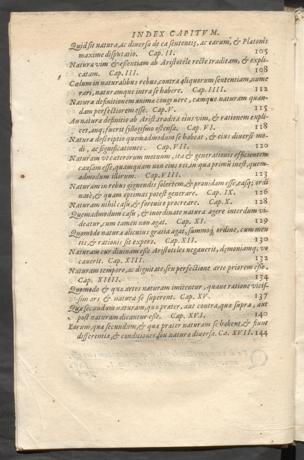 INDEX CAPITVM.
Quid sit natura, ac diversæ de ea sententiæ, ac earum, & Platonis
maxime disputatio. Cap. II. 105
Natura vim & essentiam ab Aristotele recte traditam, & expli-
catam. Cap. III. 108
Cælum in naturalibus rebus, contra aliquorum sententiam, nume
rari, naturamque intra se habere. Cap. IIII. 112
Naturæ definitionem animæ congruere, eamque naturam quan-
dam perfectiorem esse. Cap. V. 115
An natura definitio ab Arist. tradita eius vim, & rationem expli-
cet, anq; fuerit syllogismo ostensa. Cap. VI. 118
Natura descriptio quemadmodum se habeat, & eius diversi mo-
di, ac significationes. Cap. VII. 120
Naturam vt cæterorum motuum, ita & generationis efficientem
causam esse, quamquam non eius rei, in qua primū inest, quem-
admodum illorum. Cap. VIII. 123
Naturam in rebus gignendis solertem, & providam esse, easq; ordi
natè, & quam optimas potest generare. Cap. IX. 126
Naturam nihil casu, & fortuito procreare. Cap. X. 128
Quemadmodum casu, & inordinate natura agere interdum vi-
deatur, cum tamen non agat. Cap. XI. 129
Quomodo natura alicuius gratia agat, summoq; ordine, cum men
tis, & rationis sit expers. Cap. XII. 130
Naturam cur divinam esse Aristoteles negaverit, dæmoniamq; vo
caverit. Cap. XIII. 132
Naturam tempore, ac dignitate, seu perfectione arte priorem esse.
Cap. XIIII. 134
Quomodo & quæ artes naturam imitentur, quave ratione vicis-
sim ars & natura se superent. Cap. XV. 137
Quæ secundum naturam, quæ præter, aut contra, quæ supra, aut
post naturam dicantur esse. Cap. XVI. 140
Earum, quæ secundum, & quæ præter naturam se habent, & fiunt
differentiæ, & conditiones, seu natura diversæ. Ca. XVII. 144